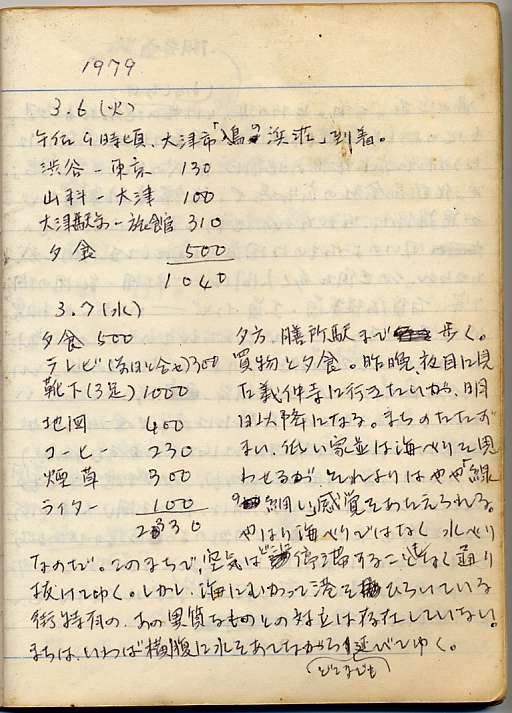 1979
3.6(火)
午後9時頃、大津市「鳰の浜荘」到着。
渋谷－東京 130
山科 大津 100
大津駅前－旅館 310
夕食 500
1040
3.7(水)
夕食 500
テレビ(前日と合せ)300
靴下(3足) 1000
地図 400
コーヒー 230
煙草 300
ライター 100
2830
夕方、膳所駅まで歩く。
買物と夕食。昨晩、夜目に見
た義仲寺に行きたいが、明
日以降になる。まちのたたず
まい、低い家並は海べりを思
わせるが、それよりはやや「線
の細い」感覚をあたえられる。
やはり海べりではなく水べり
なのだ。このまちで、空気はどこ停滞することなく通り
抜けてゆく。しかし、海にむかって港をひろいている
街特有の、あの異質なものとの対立は存在していない。
まちは、いわば横腹に水をあてながら延びてゆく。
どこまでも